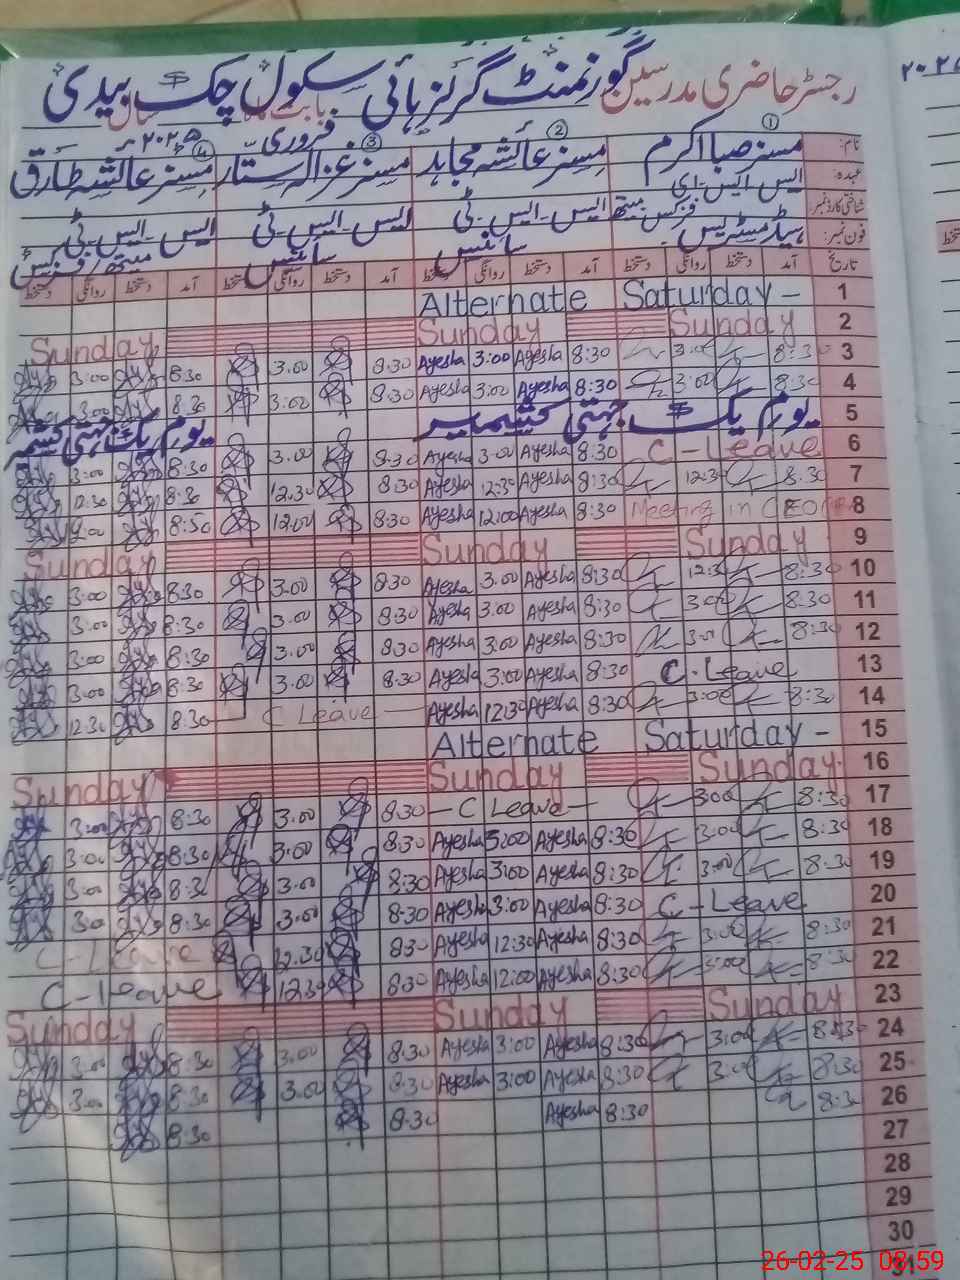 رجسٹر حاضری مدرسین گورنمنٹ گرلز ہائی سکول چک بیدی
بابت ماہ فروری سال ۲۰۲۵ء
نام: ① مسز صبا اکرم ② مسز عائشہ مجاہد ③ مسز غزالہ ستار ④ مسز عائشہ طارق
عہدہ: ایس ایس ای
شناختی کارڈ نمبر: فزکس میتھ ایس۔ایس۔ٹی ایس۔ایس۔ٹی ایس۔ایس۔ٹی
فون نمبر: ہیڈ مسٹریس سائنس سائنس میتھ، فزکس
تاریخ آمد دستخط روانگی دستخط آمد دستخط روانگی دستخط آمد دستخط روانگی دستخط آمد دستخط روانگی دستخط
1 Alternate Saturday -
2 Sunday Sunday Sunday
3 8:30 3:00 8:30 Ayesha 3:00 Ayesha 8:30 3.00 8:30 3:00
4 8:30 3:00 8:30 Ayesha 3:00 Ayesha 8:30 3:00 8:30 3:00
5 یوم یک جہتی کشمیر یوم یک جہتی کشمیر
6 C - Leave 8:30 Ayesha 3:00 Ayesha 8:30 3.00 8:30 3:00
7 8:30 12:30 8:30 Ayesha 12:30 Ayesha 8:30 12.30 8:30 12:30
8 Meeting in CEO 8:30 Ayesha 12:00 Ayesha 8:30 12.00 8:30
9 Sunday Sunday Sunday
10 8:30 12:3 8:30 Ayesha 3.00 Ayesha 8:30 3.00 8:30 3:00
11 8:30 3:00 8:30 Ayesha 3.00 Ayesha 8:30 3.00 8:30 3:00
12 8:30 3:00 8:30 Ayesha 3:00 Ayesha 8:30 3.00 8:30 3:00
13 C - Leave 8:30 Ayesha 3:00 Ayesha 8:30 3.00 8:30 3:00
14 8:30 3:00 8:30 Ayesha 12:30 Ayesha C Leave 8:30 12:30
15 Alternate Saturday -
16 Sunday Sunday Sunday
17 8:30 3:00 - C Leave - 8:30 3.00 8:30 3:00
18 8:30 3:00 8:30 Ayesha 3:00 Ayesha 8:30 3.00 8:30 3:00
19 8:30 3:00 8:30 Ayesha 3:00 Ayesha 8:30 3.00 8:30 3:00
20 C - Leave 8:30 Ayesha 3:00 Ayesha 8:30 3.00 8:30 3:00
21 8:30 3:00 8:30 Ayesha 12:30 Ayesha 8:30 12:30 C - Leave
22 8:30 3:00 8:30 Ayesha 12:00 Ayesha 8:30 12:30 C - Leave
23 Sunday Sunday Sunday
24 8:30 3:00 8:30 Ayesha 3:00 Ayesha 8:30 3.00 8:30 3:00
25 8:30 3:00 8:30 Ayesha 3:00 Ayesha 8:30 3.00 8:30 3:00
26 8:30 8:30 Ayesha 8:30 8:30
27
28
29
30
31
26-02-25 08:59